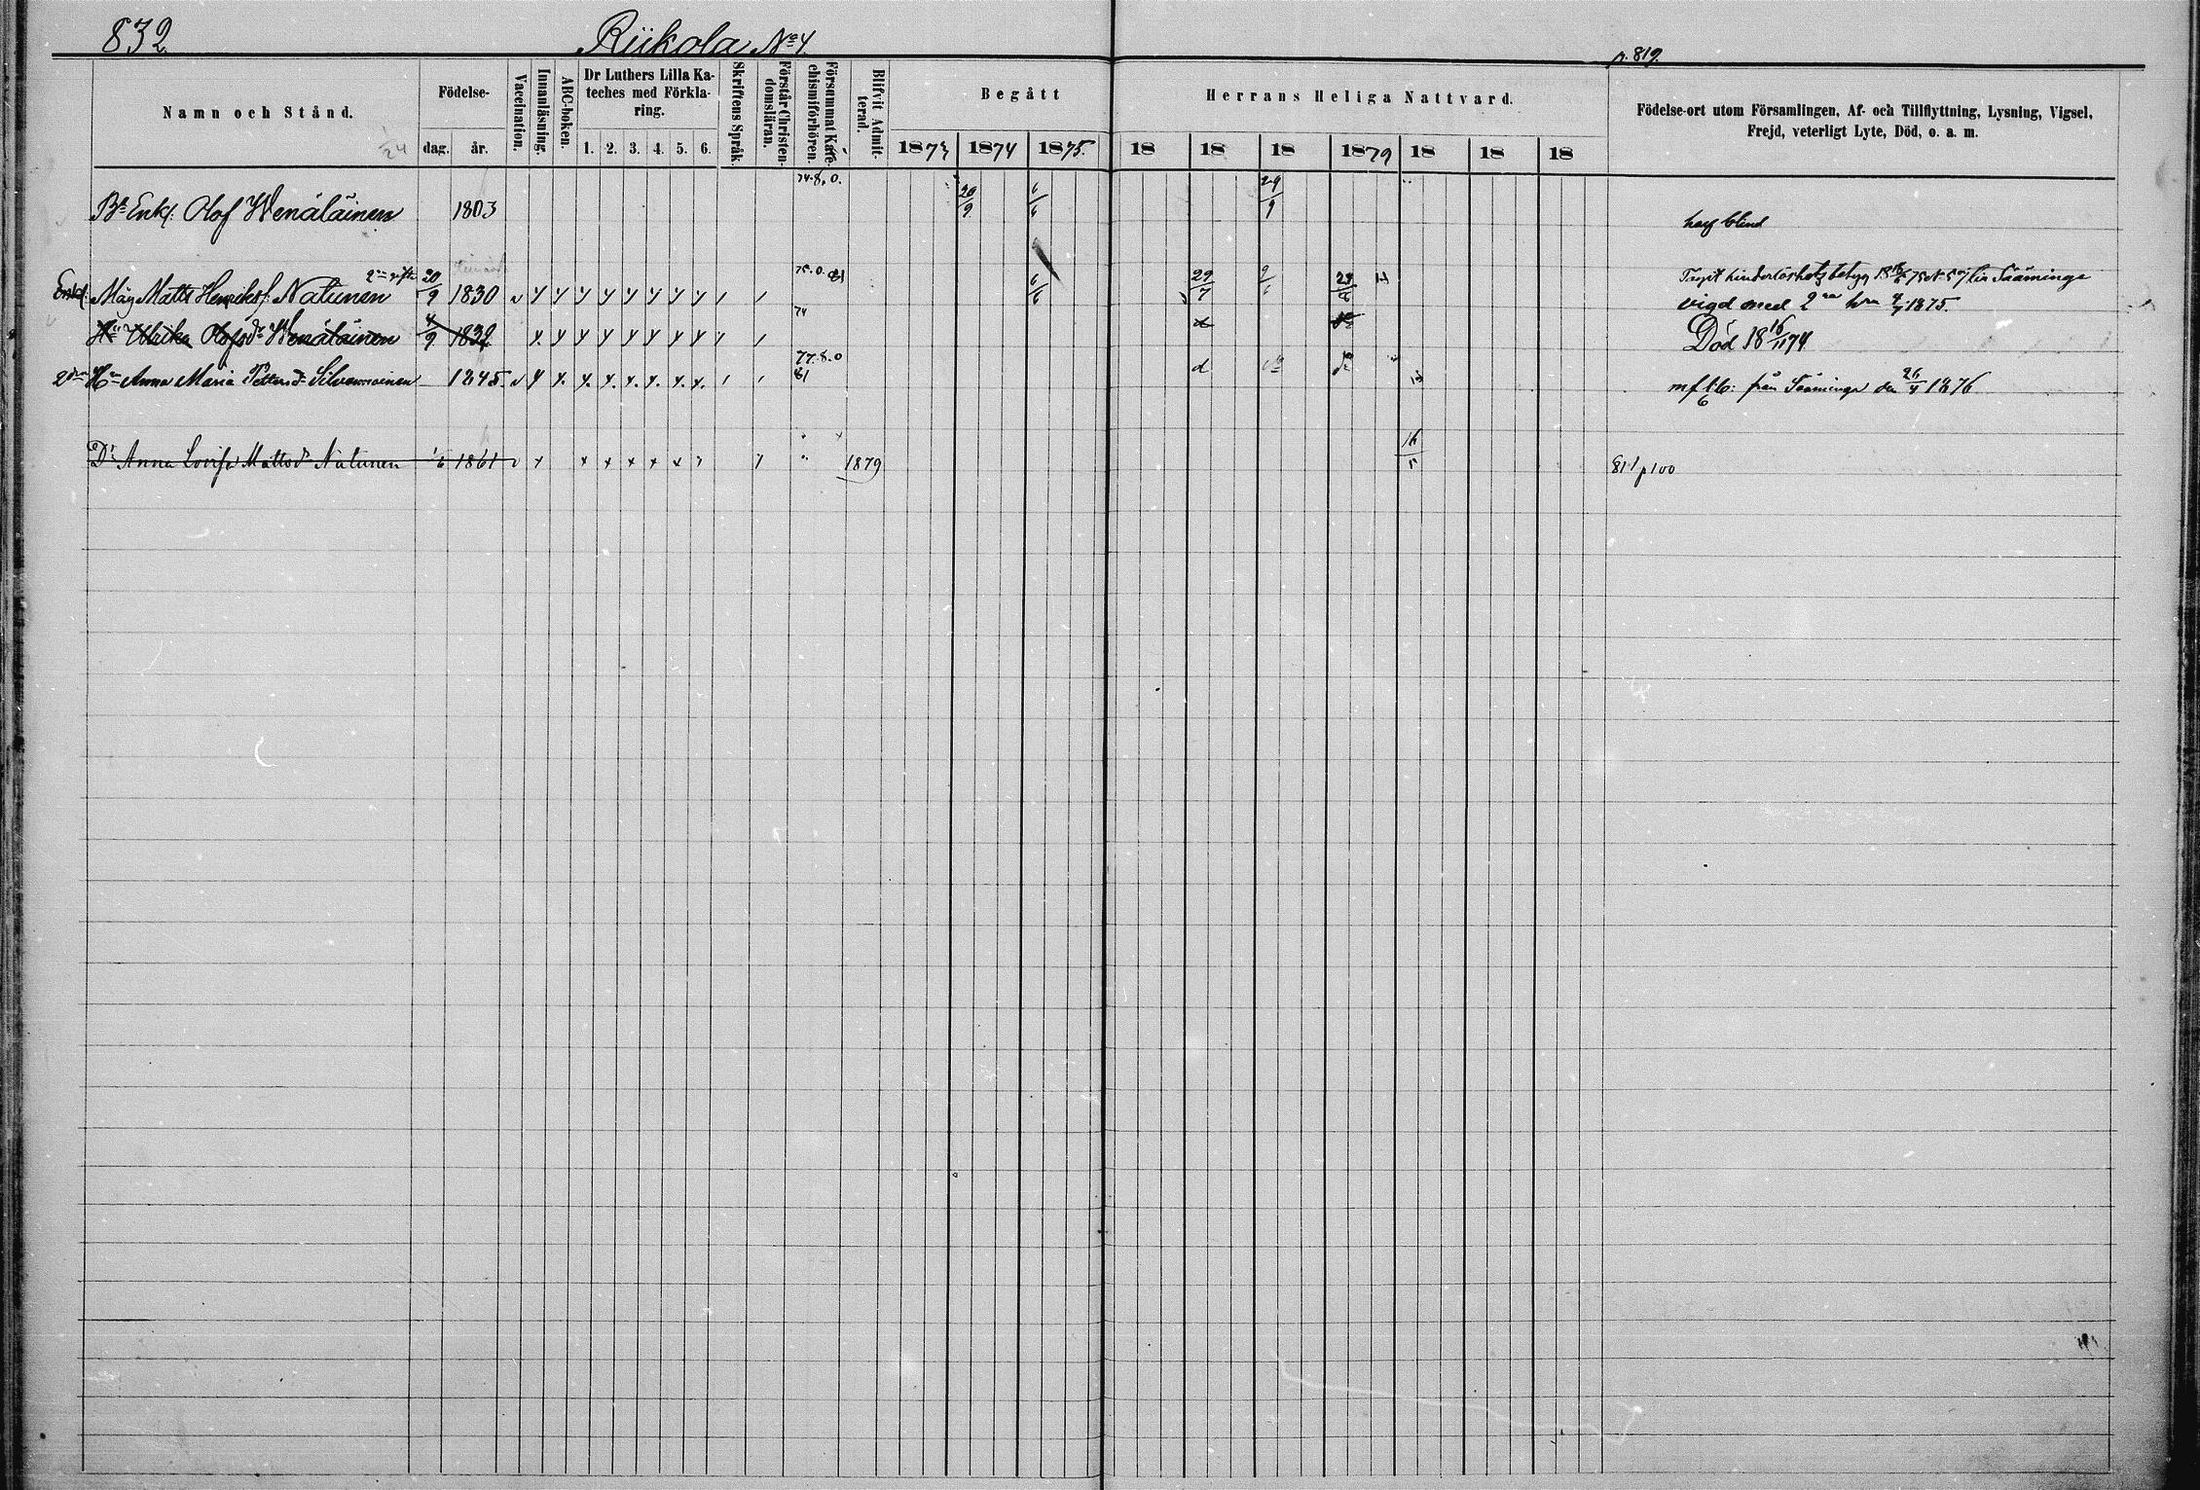 832.
Riikola No 4.
p. 819.
Namn och Stånd.
Födelse-
dag.
år.
Vaccination.
Innanläsning.
ABC-boken.
Dr Luthers Lilla Ka-
teches med Förkla-
ring.
1. 2. 3. 4. 5. 6.
Skriftens Språk.
Förstår Christen-
domsläran.
Försummat Kate-
chismiförhören.
Blifvit Admit-
terad.
Begått
Herrans Heliga Nattvard.
1873 1874 1875. 18 18 18 1879 18 18 18
Födelse-ort utom Församlingen, Af- och Tillflyttning, Lysning, Vigsel,
Frejd, veterligt Lyte, Död, o. a. m.
Enkl. Olof Wenäläinen 1803 74.8.0. 20/9 6/6 29/9 half blind
Enkl. Måg Matts Henrikss. Natunen 20/9 1830 75.0. 81 6/6 29/7 till Sääminge
vigd med 2 hn 4/7 1875.
Hu Ulrika Olofsdr Wenäläinen 4/9 1832 74 Död 18 16/11 74
2dra Hn Anna Maria Pettersdr Silvennoinen 1845 77.8.0 81 från Sääminge den 26/4 1876
Dr Anna Lovisa Mattsdr Natunen 1861 1879 811 p 100